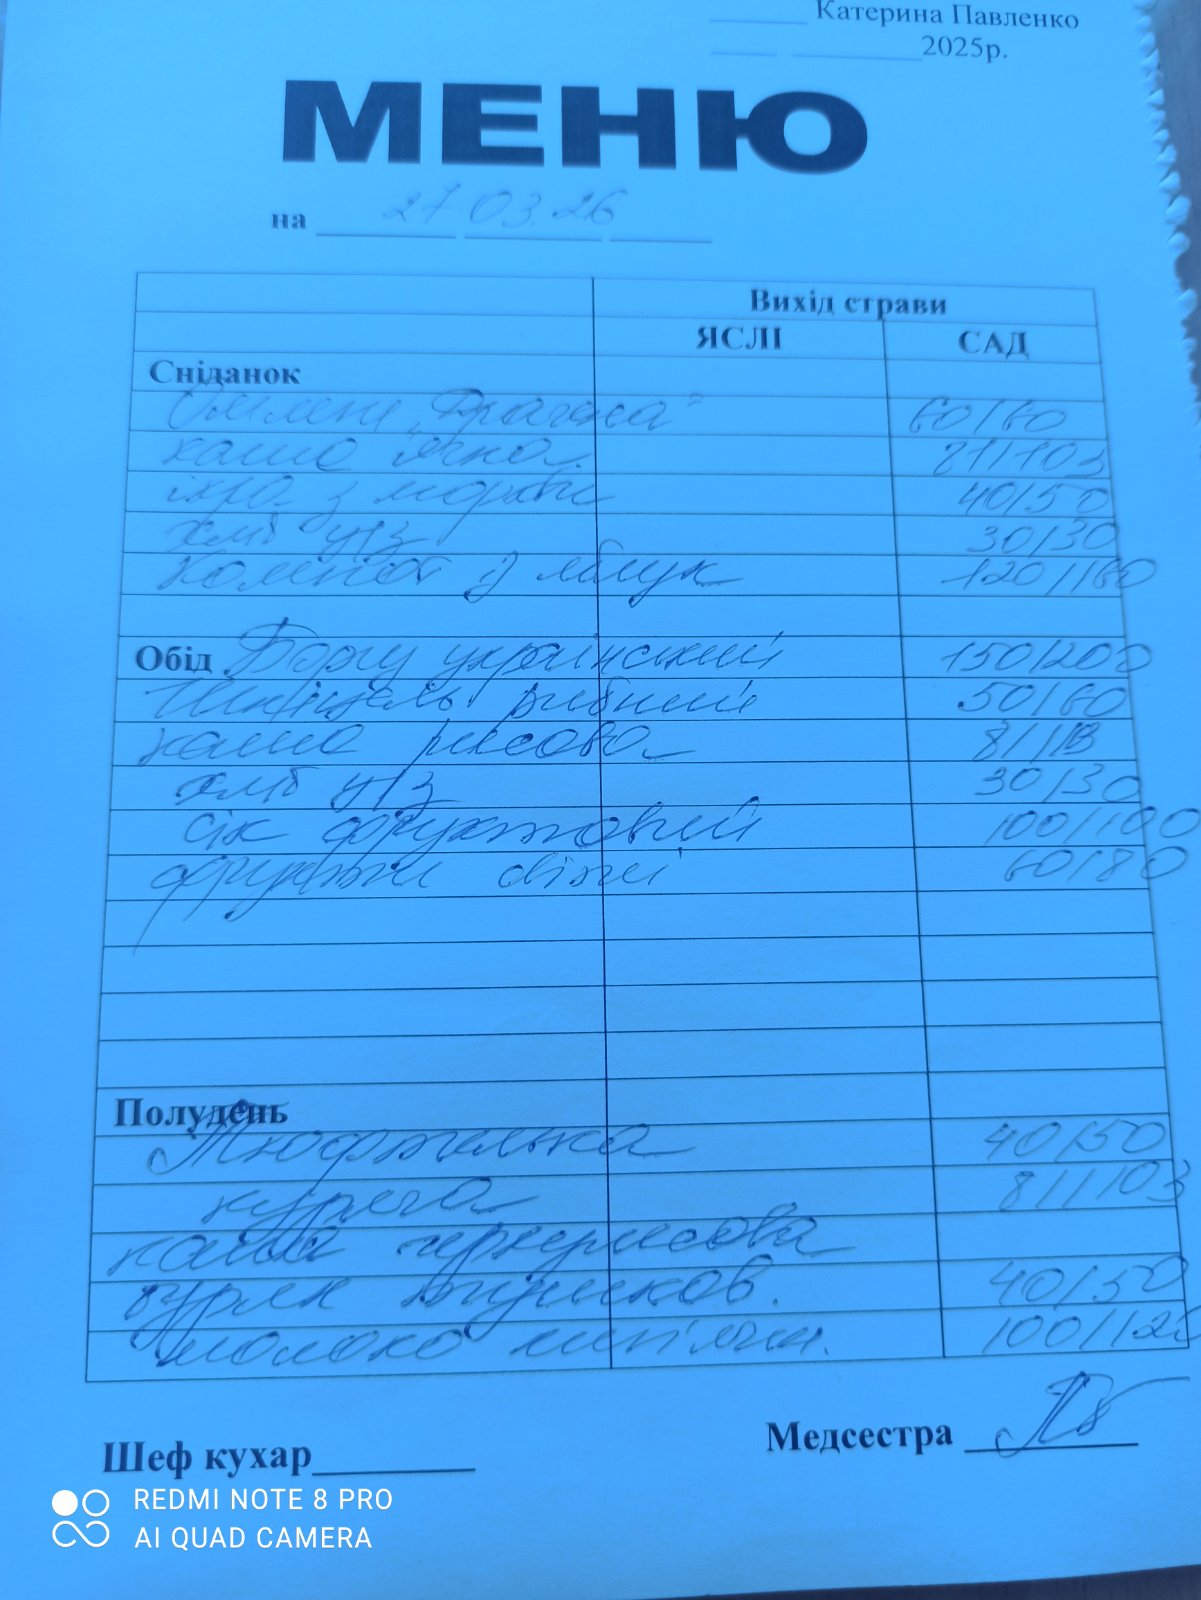 Катерина Павленко
2025р.
МЕНЮ
на 27 03. 26
Вихід страви
ЯСЛІ САД
Сніданок
Омлет „Драчена" 60/60
каша ячна 81/103
ікра з моркви 40/50
хліб ц/з 30/30
Компот з яблук 120/160
Обід Борщ український 150/200
Шніцель рибний 50/60
каша рисова 81/113
хліб ц/з 30/30
сік фруктовий 100/100
фрукти свіжі 60/80
Полудень
Тюфтелька 40/50
куряча 81/103
каша
буряк тушков. 40/50
молоко кип'ячен. 100/120
Медсестра
Шеф кухар
REDMI NOTE 8 PRO
AI QUAD CAMERA